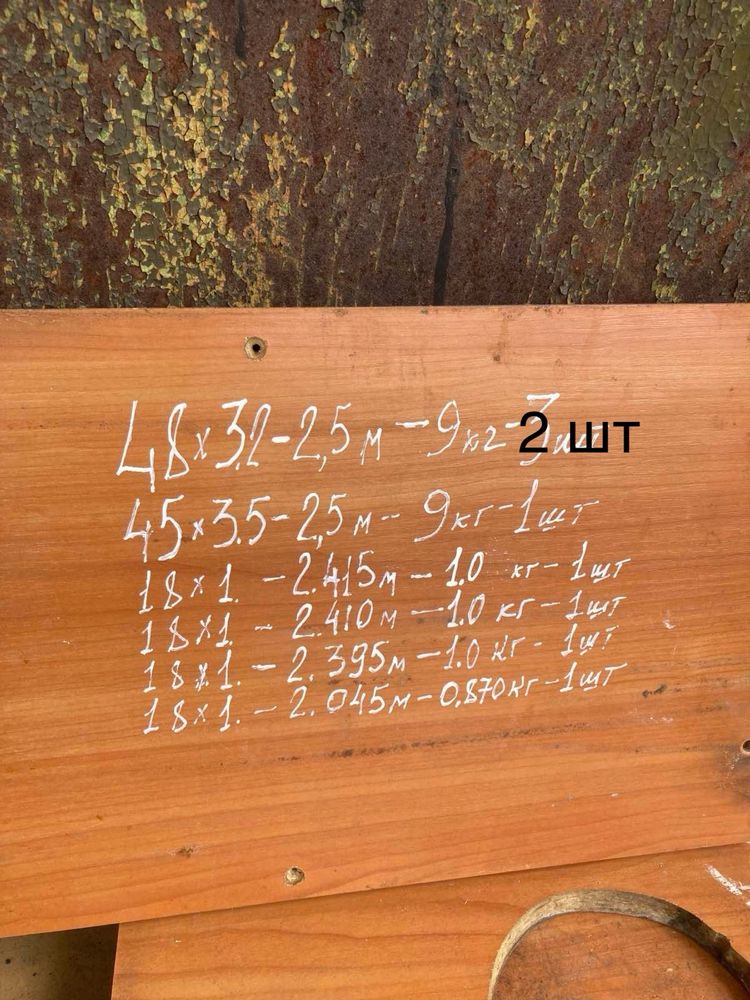 48х3.2-2,5м-9кг-2 шт
45х3.5-2,5м-9кг-1шт
18х1. - 2.415м-1.0 кг-1шт
18х1. - 2.410м-1.0 кг-1шт
18х1. - 2.395м-1.0 кг-1шт
18х1. - 2.045м-0.870кг-1шт